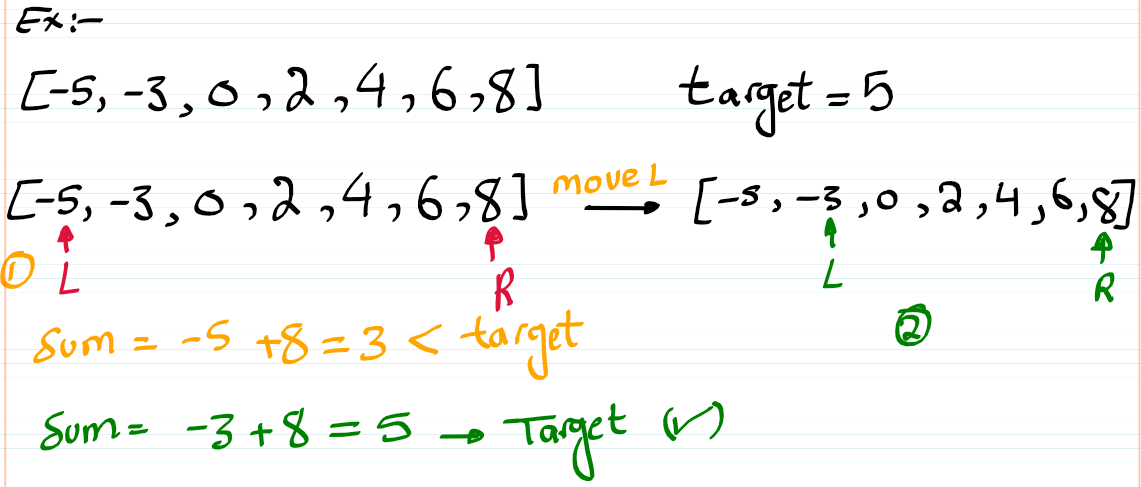 Ex:-
[-5, -3, 0, 2, 4, 6, 8] target = 5
[-5, -3, 0, 2, 4, 6, 8] move L → [-5, -3, 0, 2, 4, 6, 8]
① L R L R
②
Sum = -5 +8 = 3 < target
Sum = -3 + 8 = 5 → Target (✓)